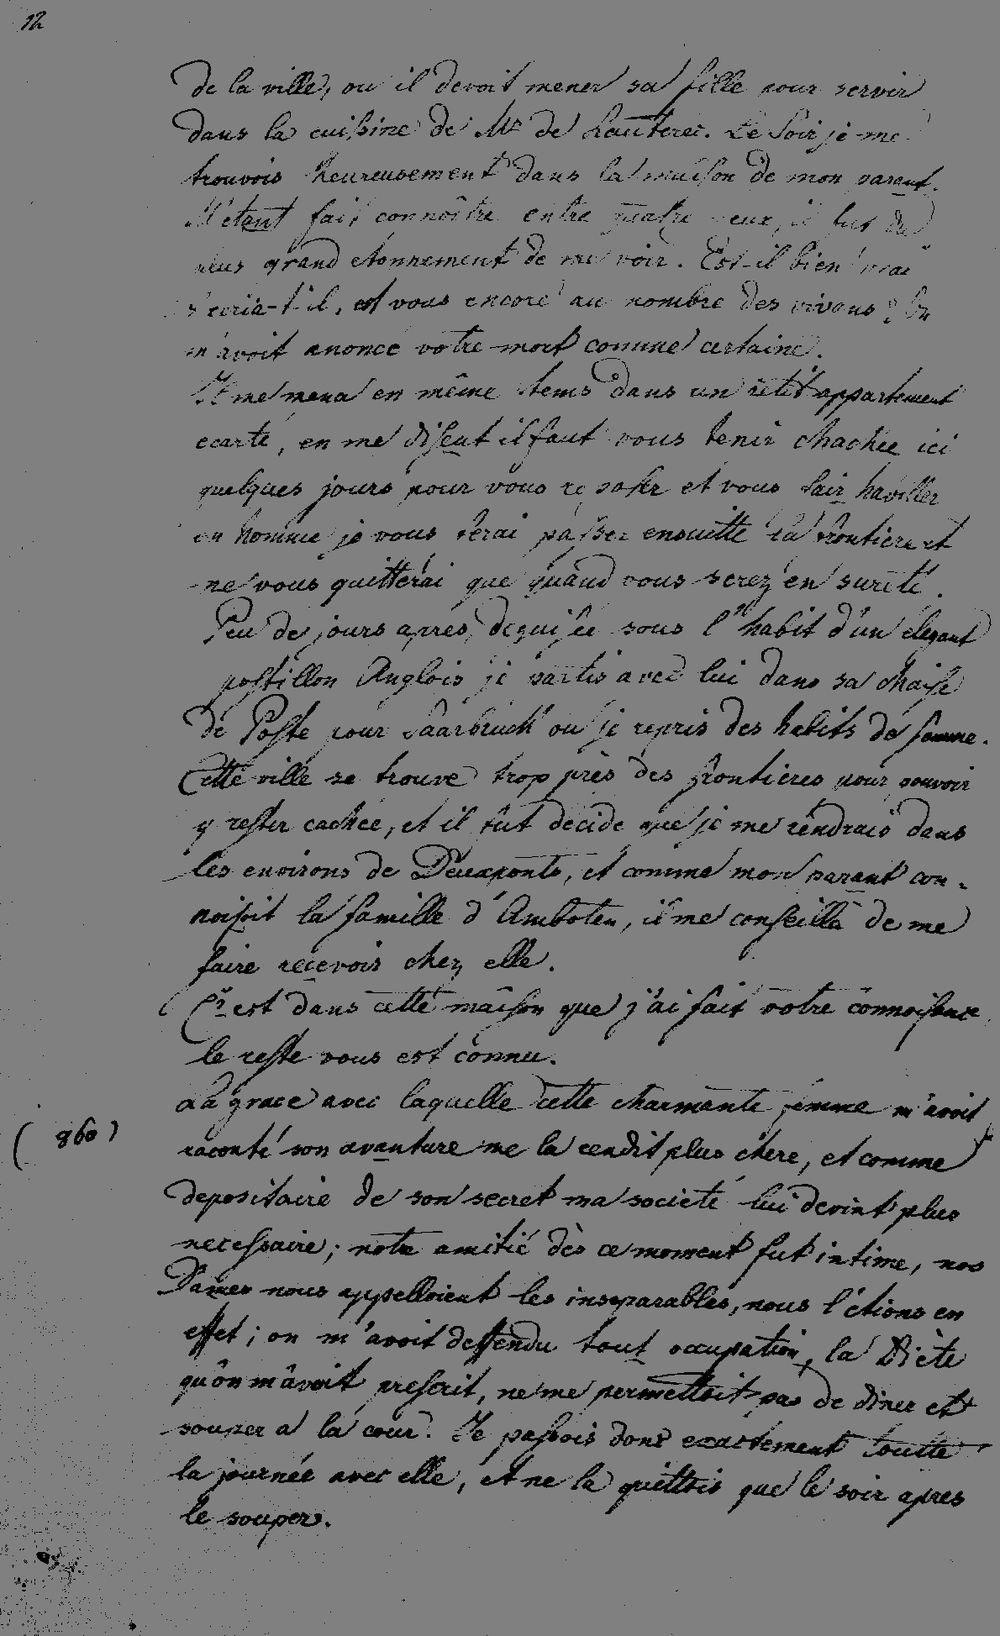 12
de la ville, ou il devoit mener sa fille pour servir
dans la cuisine de Mr de Lauterec. Le Soir je me
trouvois heureusement dans la maison de mon parent.
M'etant fait connoître entre quatre yeux, il fut du
plus grand etonnement de me voir. Est-il bien vrai
s'ecria-t-il, est vous encore au nombre des vivans ? On
m'avoit anoncé votre mort comme certaine.
Il me mena en même tems dans un petit appartement
ecarté, en me disent il faut vous tenir chachée ici
quelques jours pour vous reposer et vous fair habiller
en homme je vous ferai passer ensuitte la frontiere et
ne vous quitterai que quand vous serez en sureté.
Peu de jours après, deguisée sous l'habit d'un elegant
postillon Anglois je partis avec lui dans sa chaise
de Poste pour Saarbruck ou je repris des habits de femme.
Cette ville se trouve trop près des frontieres pour pouvoir
y rester cachée, et il fût decidé que je me rendrais dans
les environs de Deuxponts, et comme mon parant con-
noisoit la famille d'Amboten, il me conseilla de me
faire recevoir chez elle.
C'est dans cette maison que j'ai fait votre connoisance
le reste vous est connu.
La grace avec laquelle cette charmante femme m'avoit
(860)
raconté son avanture me la rendit plus chere, et comme
depositaire de son secret ma societé lui devint plus
necessaire; notre amitié dès ce moment fut intime, nos
Dames nous appelloient les inseparables, nous l'étions en
effet; on m'avoit deffendu tout occupation, la Diète
qu'on m'avoit prescrit, ne me permettoit pas de diner et
souper a la cour. Je passois donc exactement toutte
la journée avec elle, et ne la quittois que le soir apres
le souper.